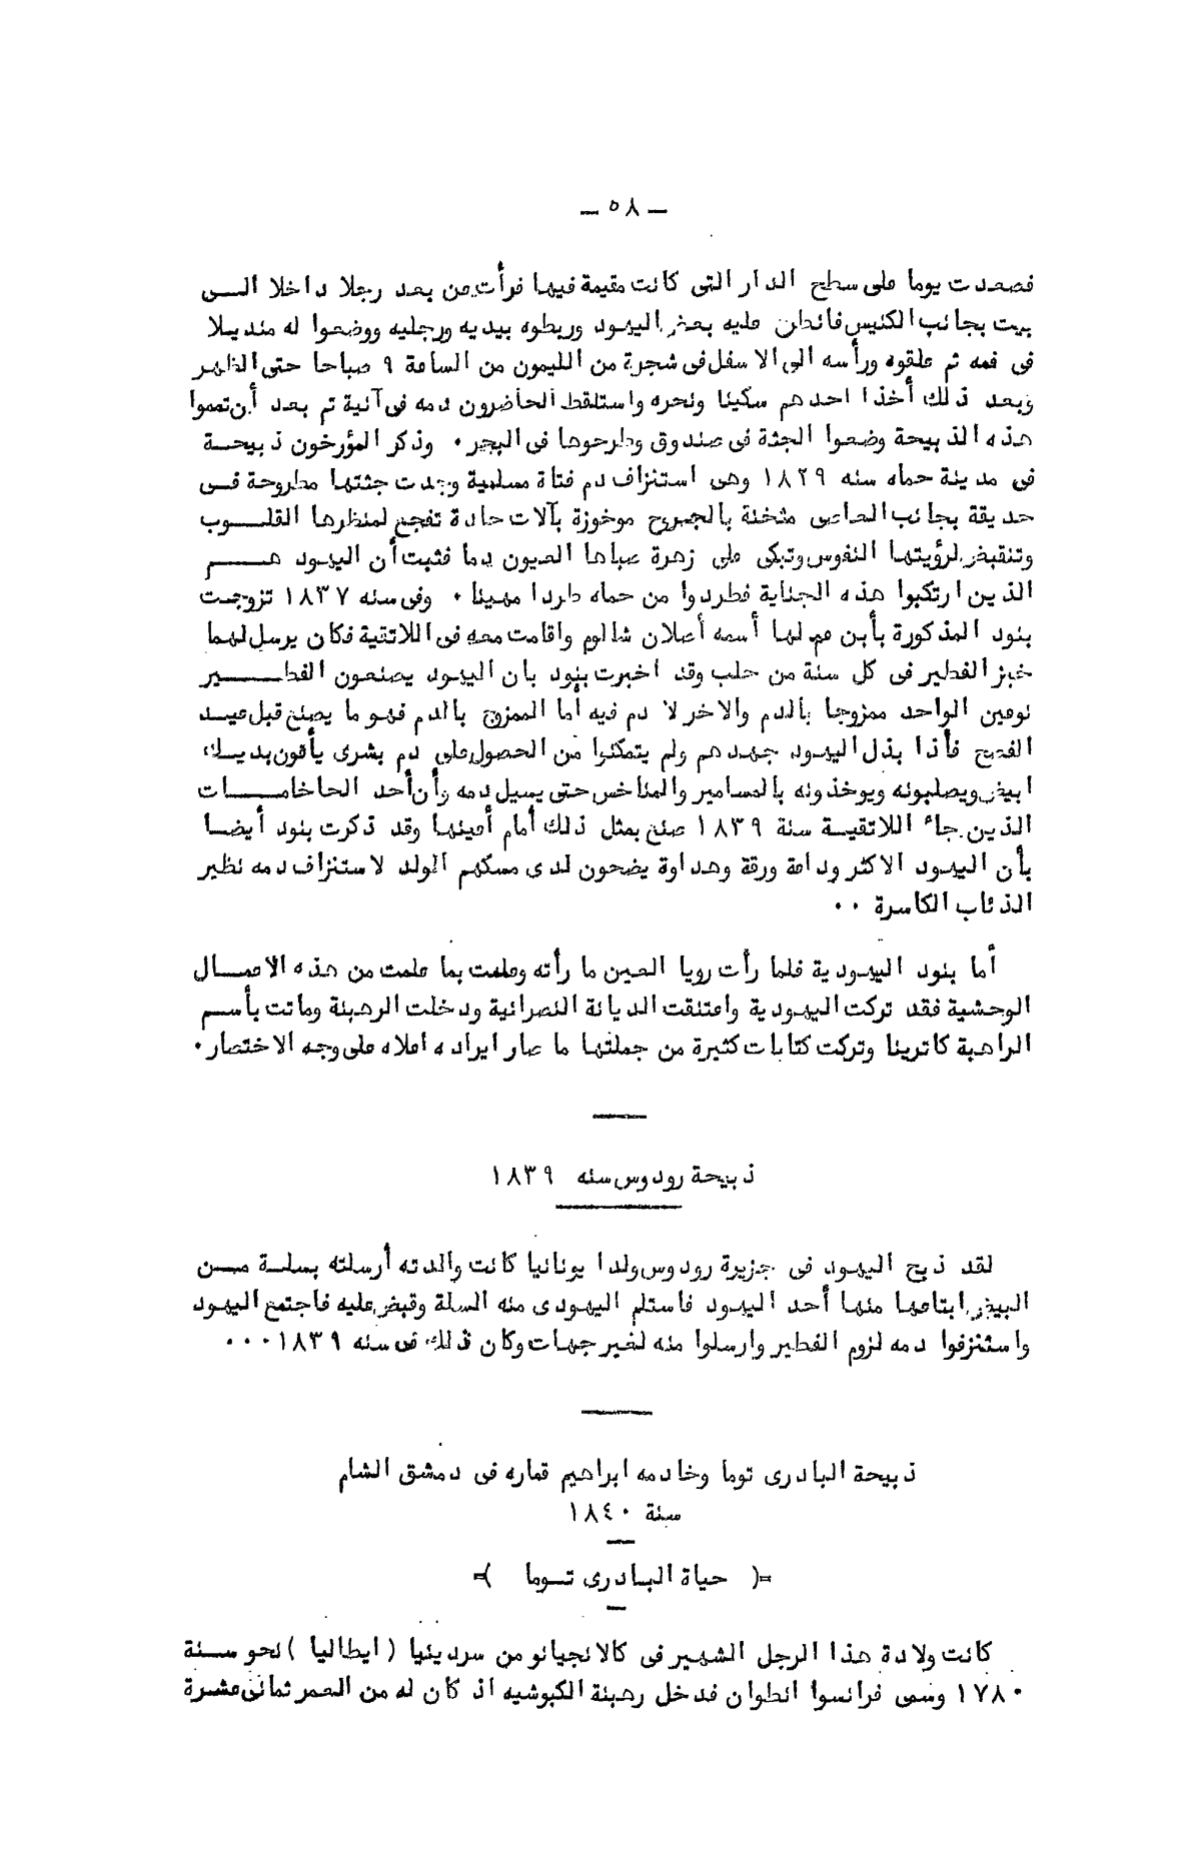 — ٥٨ —
فصعدت يوما على سطح الدار التى كانت مقيمة فيها فرأت عن بعد رجلا داخلا الــى
بيت بجانب الكنيس فانطن عليه بعض اليهود وربطوه بيديه ورجليه ووضعوا له منديــلا
فى فمه ثم علقوه ورأسه الى الاسفل فى شجرة من الليمون من الساعة ٩ صباحا حتى الظهر
وبعد ذلك أخذا احدهم سكينا ونحره واستلقط الحاضرون دمه فى آنية ثم بعد أن تمموا
هذه الذبيحة وضعوا الجثة فى صندوق وطرحوها فى البحر ٠ وذكر المؤرخون ذبيحــة
فى مدينة حماه سنه ١٨٢٩ وهى استنزاف دم فتاة مسلمية وجدت جثتها مطروحة فــى
حديقة بجانب العاصى مثخنة بالجروح موخوزة بآلات حادة تفجع لمنظرها القلــوب
وتنقبض لرؤيتها النفوس وتبكى على زهرة صباها العيون دما فثبت أن اليهود هـــم
الذين ارتكبوا هذه الجناية فطردوا من حماه طردا مهينا ٠ وفى سنه ١٨٣٧ تزوجت
بنود المذكورة بأبن عم لها أسمه أصلان شالوم واقامت معه فى اللاتقية فكان يرسل لهما
خبز الفطير فى كل سنة من حلب وقد اخبرت بنود بان اليهود يصنعون الفطـــير
نوعين الواحد ممزوجا بالدم والاخر لا دم فيه أما الممزوج بالدم فهو ما يصنع قبل عيــد
الفصح فأذا بذل اليهود جهدهم ولم يتمكنوا من الحصول على دم بشرى يأتون بديــك
ابيض ويصلبونه ويوخذونه بالمسامير والمناخس حتى يسيل دمه وأن أحد الحاخامـــات
الذين جاء اللاتقيــة سنة ١٨٣٩ صنع بمثل ذلك أمام أعينها وقد ذكرت بنود أيضــا
بأن اليهود الاكثر وداعة ورقة وهداوة يضحون لدى مسكهم الولد لاستنزاف دمه نظير
الذئاب الكاسرة ٠٠
أما بنود اليهودية فلما رأت رويا العين ما رأته وعلمت بما علمت من هذه الاعمــال
الوحشية فقد تركت اليهودية واعتنقت الديانة النصرانية ودخلت الرهبنة وماتت بأســم
الراهبة كاترينا وتركت كتابات كثيرة من جملتها ما صار ايراده اعلاه على وجه الاختصار ٠
ذبيحة رودوس سنه ١٨٣٩
لقد ذبح اليهود فى جزيرة رودوس ولدا يونانيا كانت والدته أرسلته بسلــة مــن
البيض ابتاعها منها أحد اليهود فاستلم اليهودى منه السلة وقبض عليه فاجتمع اليهود
واستنزفوا دمه لزوم الفطير وارسلوا منه لغير جهات وكان ذلك فى سنه ١٨٣٩ ٠٠٠
ذبيحة البادرى توما وخادمه ابراهيم قماره فى دمشق الشام
سنة ١٨٤٠
=( حياة البـادرى تــوما )=
كانت ولادة هذا الرجل الشهير فى كالانجيانو من سردينيا ( ايطاليا ) نحو ســنة
١٧٨٠ وسمى فرانسوا انطوان فدخل رهبنة الكبوشيه اذ كان له من العمر ثمانى عشرة